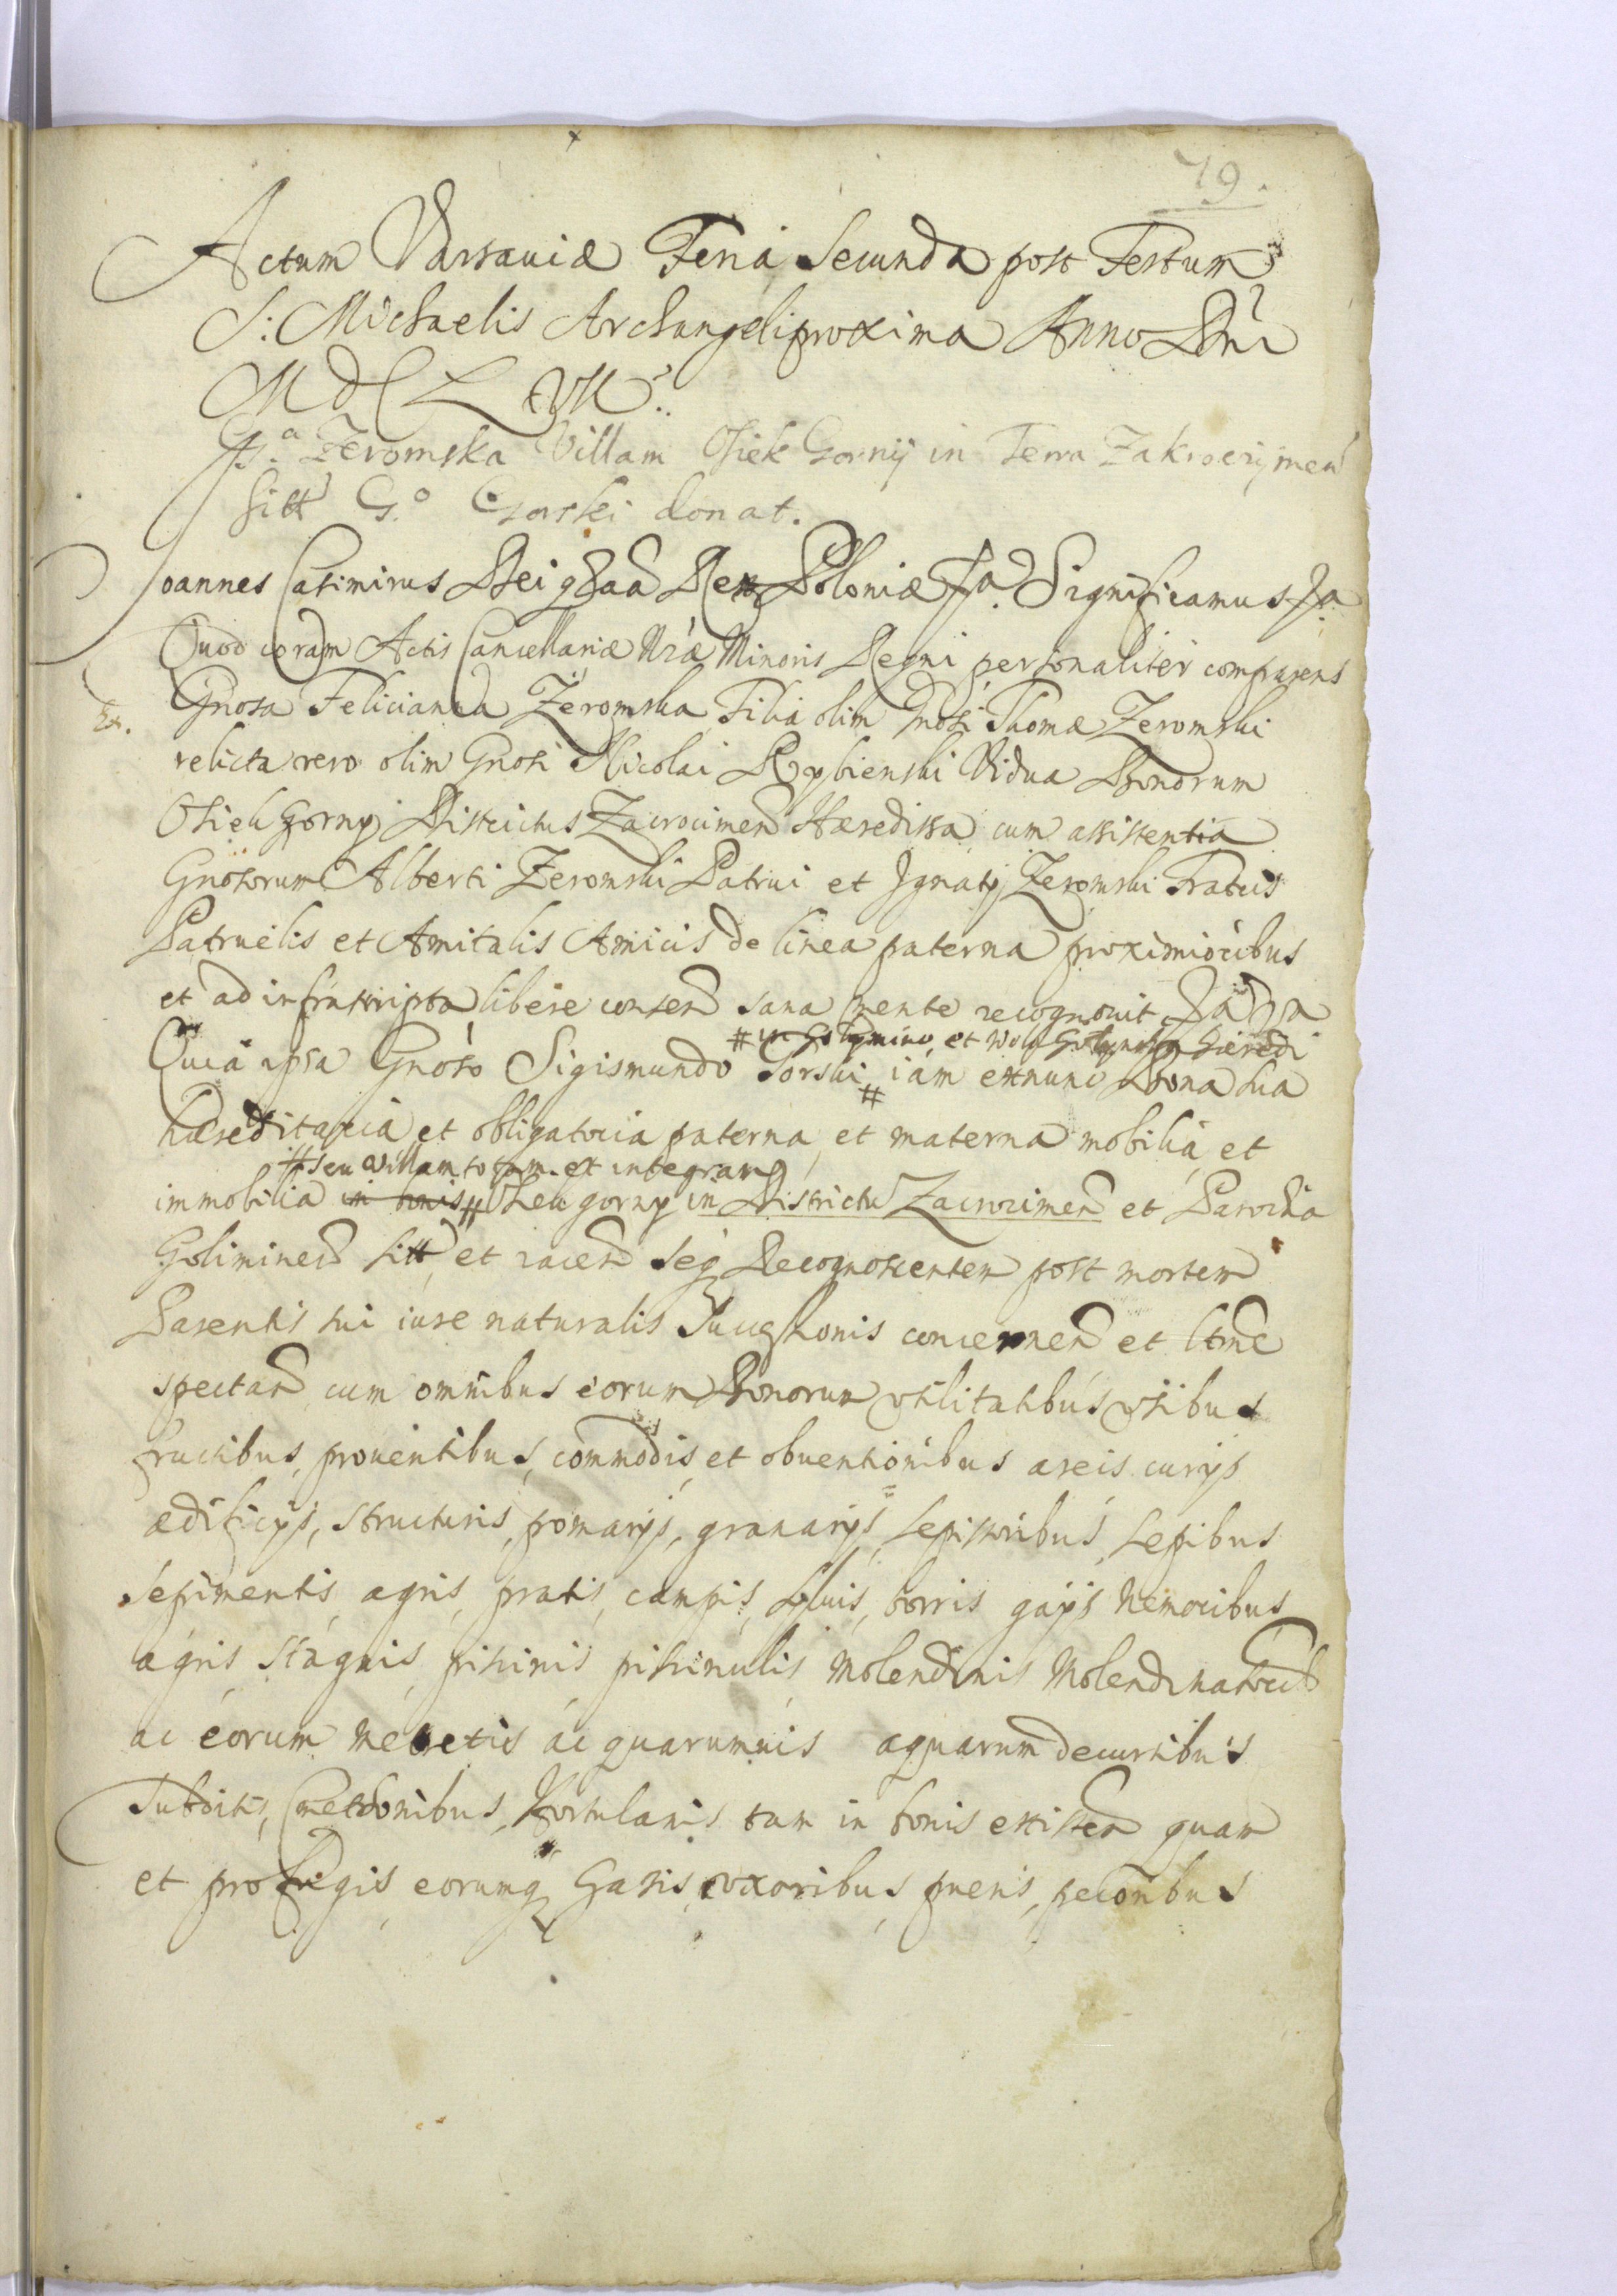 79.
Actum Varsauiæ Feria Secunda post Festum
S: Michaelis Archangeli proxima Anno Dni
G.a Zeromska Villam Osiek Gorny in Terra Zakroczymen
sitt G.o Gorski donat.
Joannes Casimirus Dei graa Rex Poloniæ Significamus
Quod coram Actis Cancellariæ Nræ Minoris Regni personaliter comparens
Ex.
Gnosa Felicianna Zeromska Filia olim Gnosi Thomæ Zeromski
relicta vero olim Gnosi Nicolai Rybienski Vidua Bonorum
Osiek gorny Districtus Zacrocimen Hæredissa cum assistentia
Gnosorum Alberti Zeromski Patrui et Ignatij Zeromski Fratris
Patruelis et Amitalis Amicis de linea paterna proximioribus
et ad infrascripta libere consen sana mente recognouit
# in Golymino et Wola Golyminska hæredi
Quia ipsa Gnoso Sigismundo Gorski # iam exnunc Bona sua
hæreditaria et obligatoria paterna, et materna mobilia et
# seu villam totam et integram
immobilia in bonis # Osiek gorny in Districtu Zacrocimen et Parochia
Goliminen sitt et iacen seq Recognoscentem post mortem
Parentis sui iure naturalis Sucessionis concernen et
spectan cum omnibus eorum Bonorum vtilitatibus vsibus
fructibus, prouentibus, commodis et obuentionibus areis curijs
ædificijs, structuris, pomarijs, granarijs, sepistoribus, sepibus
sepimentis, agris, pratis, campis, syluis, borris gajis nemoribus
agris stagnis piscinis piscinulis Molendinis Molendinatorib
ac eorum metretis ac quarumuis aquarum decursibus
Subditis, Cmethonibus, Hortulanis tam in bonis existen quam
et profugis eorumq Gazis, vxoribus, pueris, pecoribus